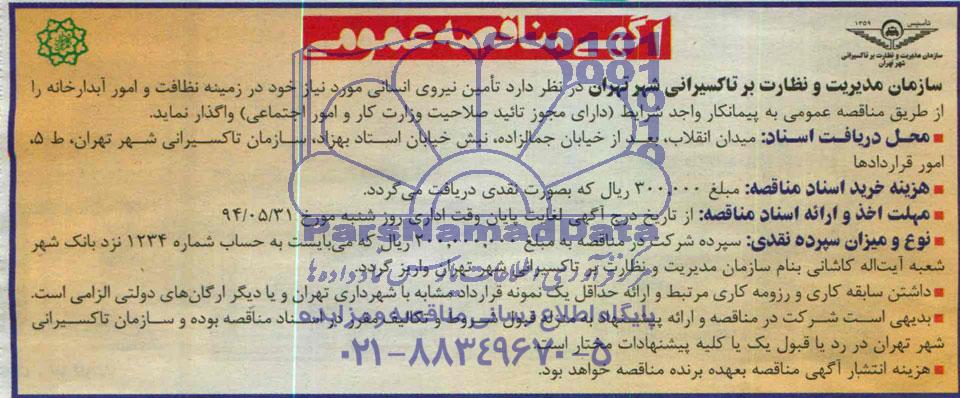 آگهی مناقصه عمومی
تاسیس ۱۳۵۹
سازمان مدیریت و نظارت بر تاکسیرانی
شهر تهران
سازمان مدیریت و نظارت بر تاکسیرانی شهر تهران در نظر دارد تأمین نیروی انسانی مورد نیاز خود در زمینه نظافت و امور آبدارخانه را
از طریق مناقصه عمومی به پیمانکار واجد شرایط (دارای مجوز تائید صلاحیت وزارت کار و امور اجتماعی) واگذار نماید.
محل دریافت اسناد: میدان انقلاب، بعد از خیابان جمالزاده، نبش خیابان استاد بهزاد، سازمان تاکسیرانی شهر تهران، ط ۵،
امور قراردادها
هزینه خرید اسناد مناقصه: مبلغ ۳۰۰.۰۰۰ ریال که بصورت نقدی دریافت می‌گردد.
مهلت اخذ و ارائه اسناد مناقصه: از تاریخ درج آگهی لغایت پایان وقت اداری روز شنبه مورخ ۹۴/۰۵/۳۱
نوع و میزان سپرده نقدی: سپرده شرکت در مناقصه به مبلغ ۲۰۰,۰۰۰,۰۰۰ ریال که می‌بایست به حساب شماره ۱۲۳۴ نزد بانک شهر
شعبه آیت‌اله کاشانی بنام سازمان مدیریت و نظارت بر تاکسیرانی شهر تهران واریز گردد.
داشتن سابقه کاری و رزومه کاری مرتبط و ارائه حداقل یک نمونه قرارداد مشابه با شهرداری تهران و یا دیگر ارگان‌های دولتی الزامی است.
بدیهی است شرکت در مناقصه و ارائه پیشنهاد به منزله قبول شروط و تکالیف مقرر در اسناد مناقصه بوده و سازمان تاکسیرانی
شهر تهران در رد یا قبول یک یا کلیه پیشنهادات مختار است.
هزینه انتشار آگهی مناقصه بعهده برنده مناقصه خواهد بود.
ParsNamadData
پایگاه اطلاع رسانی مناقصه و مزایده
۰۲۱-۸۸۳۴۹۶۷۰-۵